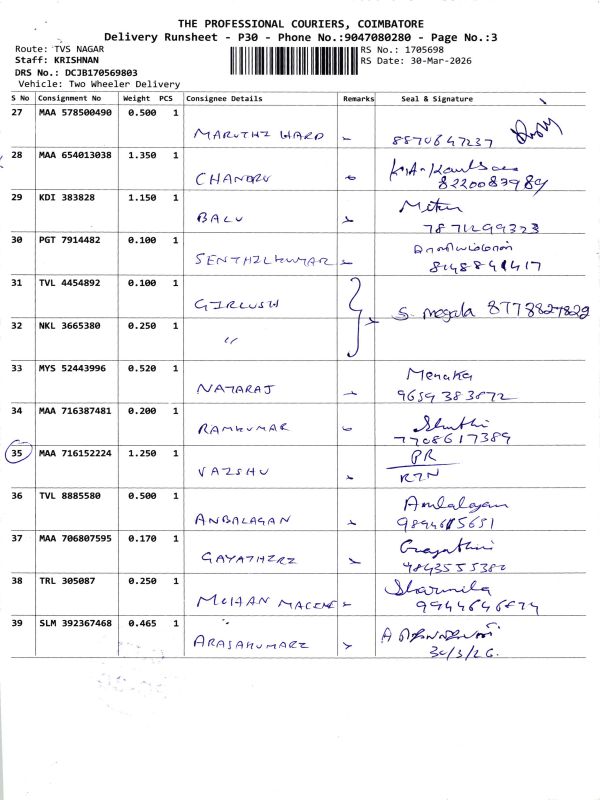 THE PROFESSIONAL COURIERS, COIMBATORE
Delivery Runsheet - P30 - Phone No.:9047080280 - Page No.:3
Route: TVS NAGAR
RS No.: 1705698
Staff: KRISHNAN
RS Date: 30-Mar-2026
DRS No.: DCJB170569803
Vehicle: Two Wheeler Delivery
S No Consignment No Weight PCS Consignee Details Remarks Seal & Signature
27 MAA 578500490 0.500 1
MARUTHI HARD 8870647237
28 MAA 654013038 1.350 1
CHANDRU 8220083989
29 KDI 383828 1.150 1
BALU Mitun
7871299323
30 PGT 7914482 0.100 1
SENTHILKUMAR
8148841417
31 TVL 4454892 0.100 1
S. megala 8778827822
32 NKL 3665380 0.250 1
"
33 MYS 52443996 0.520 1
Menaka
NATARAJ 9659383872
34 MAA 716387481 0.200 1
RAMKUMAR
7708617389
35 MAA 716152224 1.250 1
PR
VAISHU RTN
36 TVL 8885580 0.500 1
Anbalagan
ANBALAGAN
37 MAA 706807595 0.170 1
Gayathiri
GAYATHIRI 9843555380
38 TRL 305087 0.250 1
Sharmila
MOHAN 9944646874
39 SLM 392367468 0.465 1
ARASAKUMARI
30/3/26.